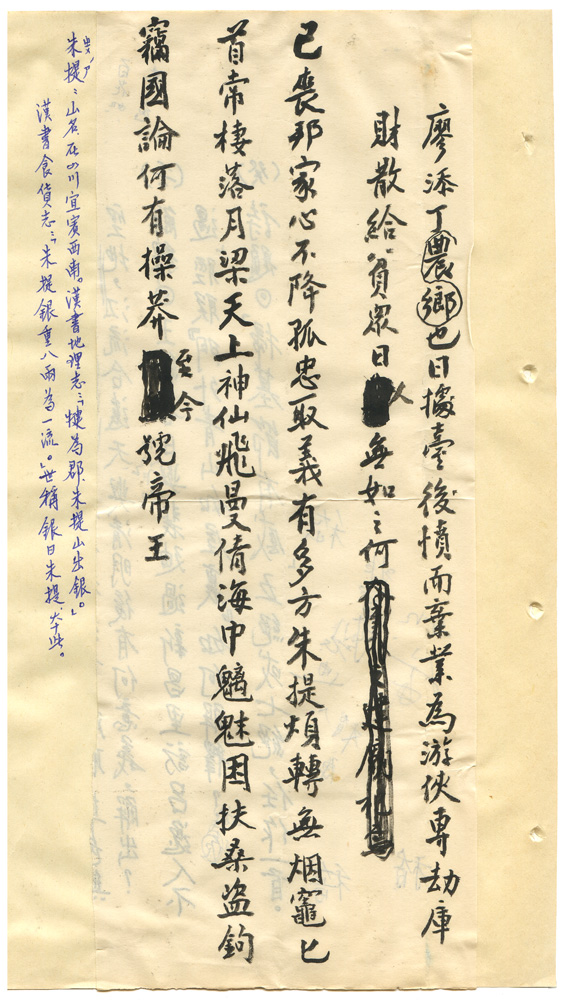 廖添丁農鄉也日據臺後憤而棄業為游俠專劫庫
財散給貧眾日人無如之何
已喪邦家心不降孤忠取義有多方朱提煩轉無烟竈匕
首常棲落月梁天上神仙飛曼倩海中魑魅困扶桑盜鉤
竊國論何有操莽至今號帝王
朱提:山名在四川宜賓西南。漢書地理志:犍為郡、朱提山出銀。」
漢書食貨志:朱提銀重八兩為一流。」世稱銀曰朱提、本此。